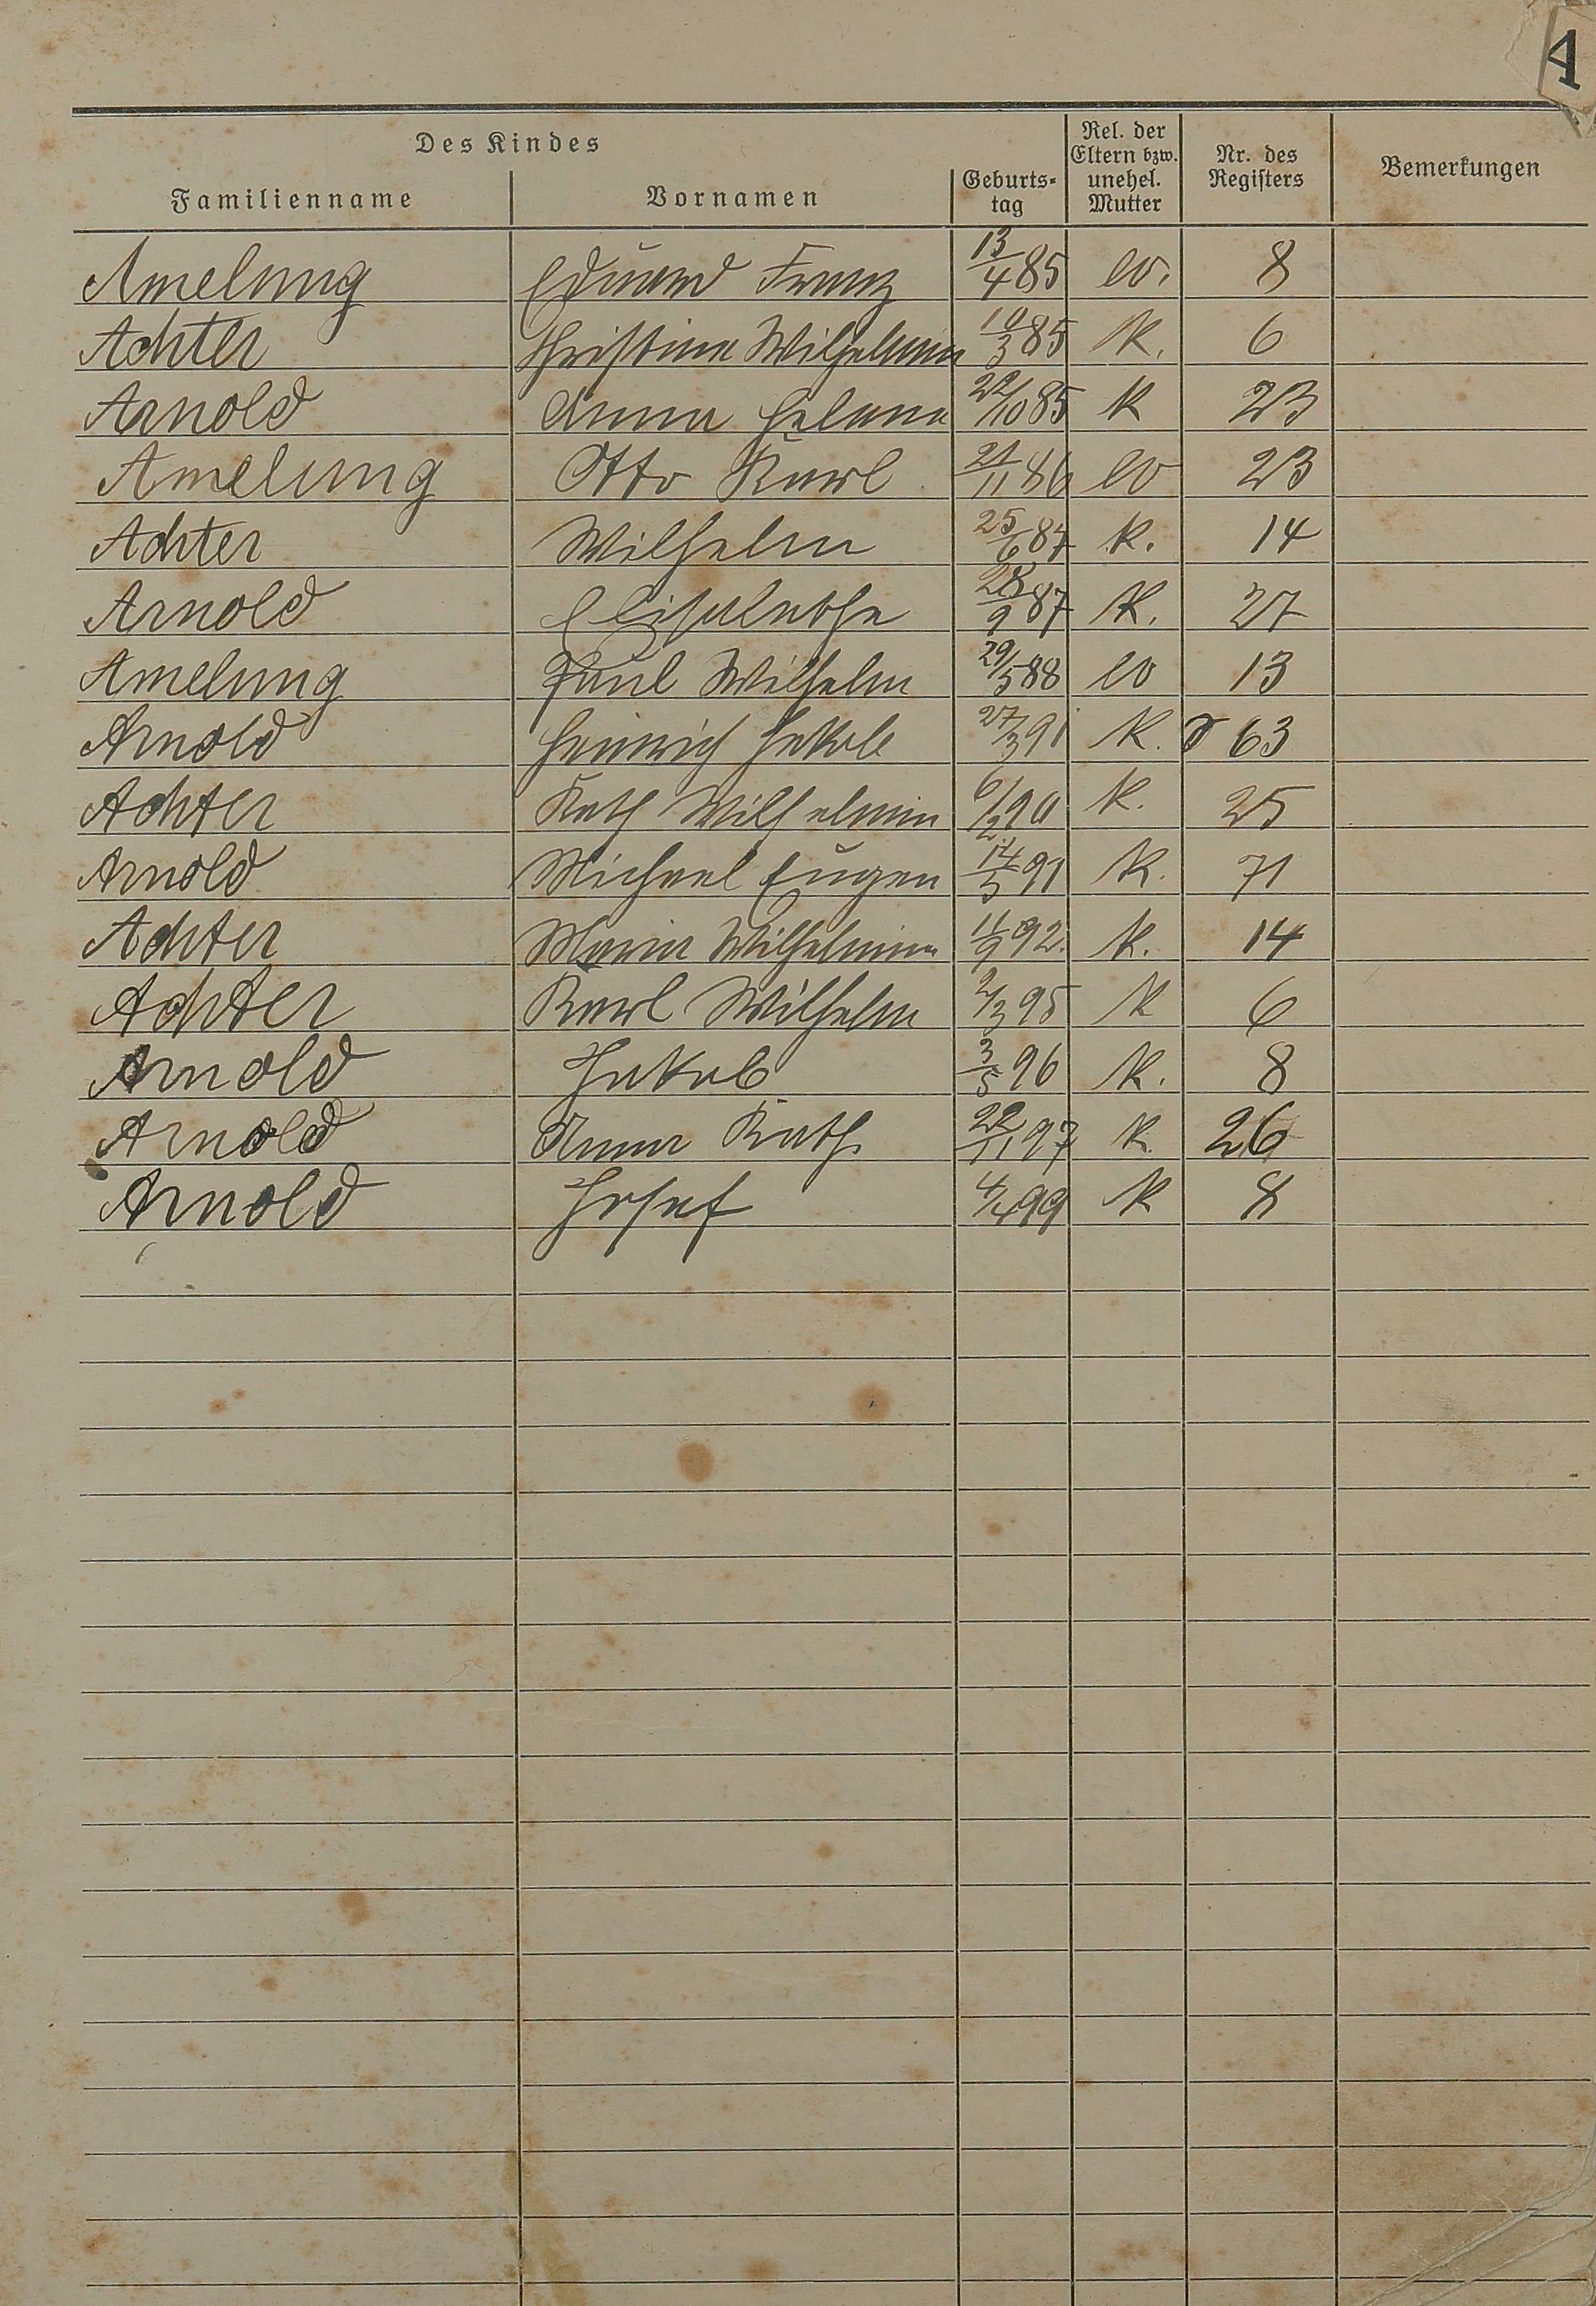 A
Des Kindes
Familienname Vornamen Geburts-tag Rel. der Eltern bzw. unehel. Mutter Nr. des Registers Bemerkungen
Amelung Eduard Franz 13/4 85 ev. 8
Achter Christina Wilhelmina 10/3 85 K. 6
Arnold Anna Helena 22/10 85 K 23
Amelung Otto Karl 21/11 86 ev 23
Achter Wilhelm 25/6 87 K. 14
Arnold Elisabetha 28/9 87 K. 27
Amelung Paul Wilhelm 29/5 88 ev 13
Arnold Heinrich Jakob 27/3 91 K. 63
Achter Kath Wilhelmin 6/2 90 K. 25
Arnold Michael Eugen 14/5 91 K. 71
Achter Maria Wilhelmina 11/9 92. K. 14
Achter Karl Wilhelm 2/3 95 K 6
Arnold Jakob 3/5 96 K. 8
Arnold Anna Kath. 22/11 97 K. 26
Arnold Josef 4/4 99 K 8